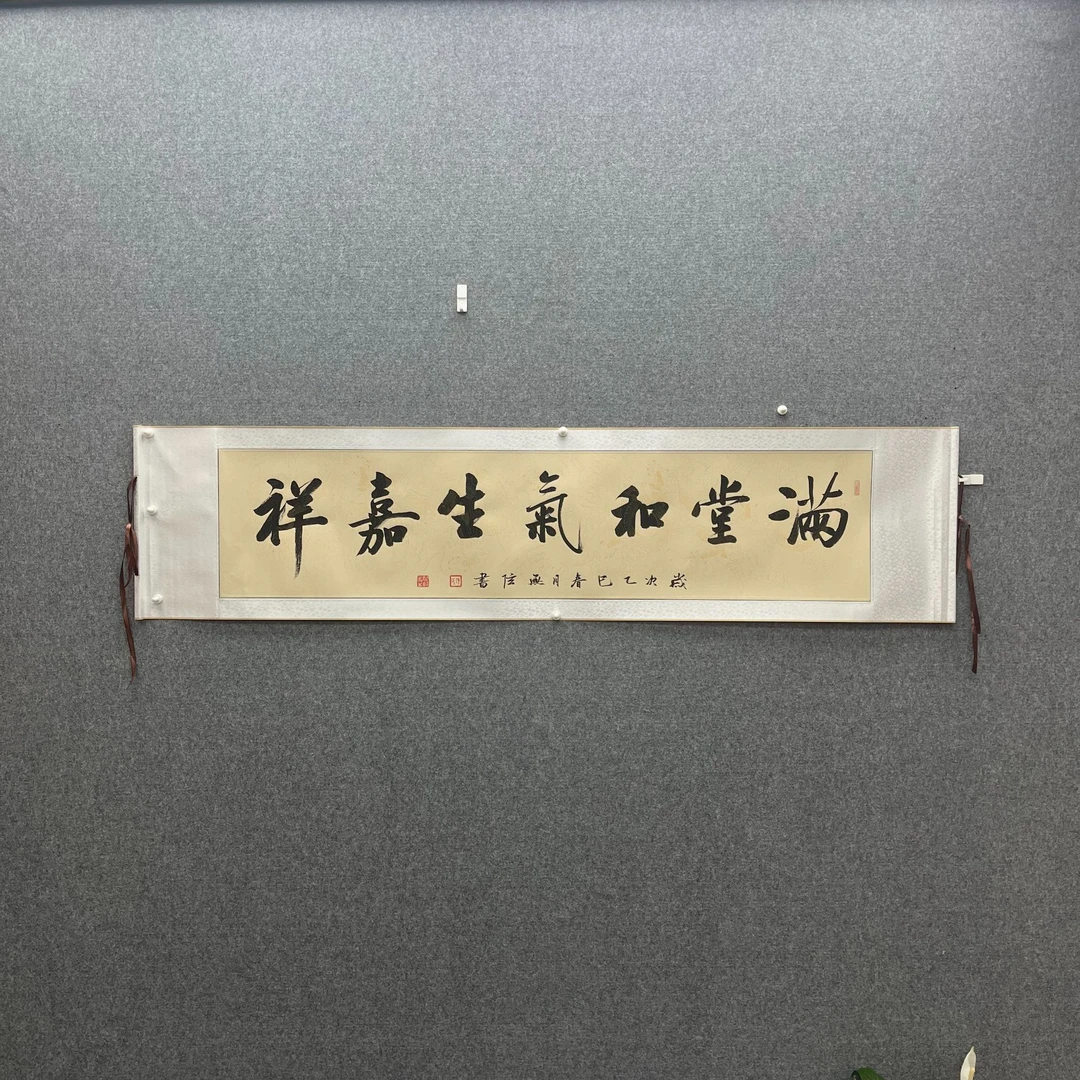 满堂和氣生嘉祥
歲次乙巳春月 書